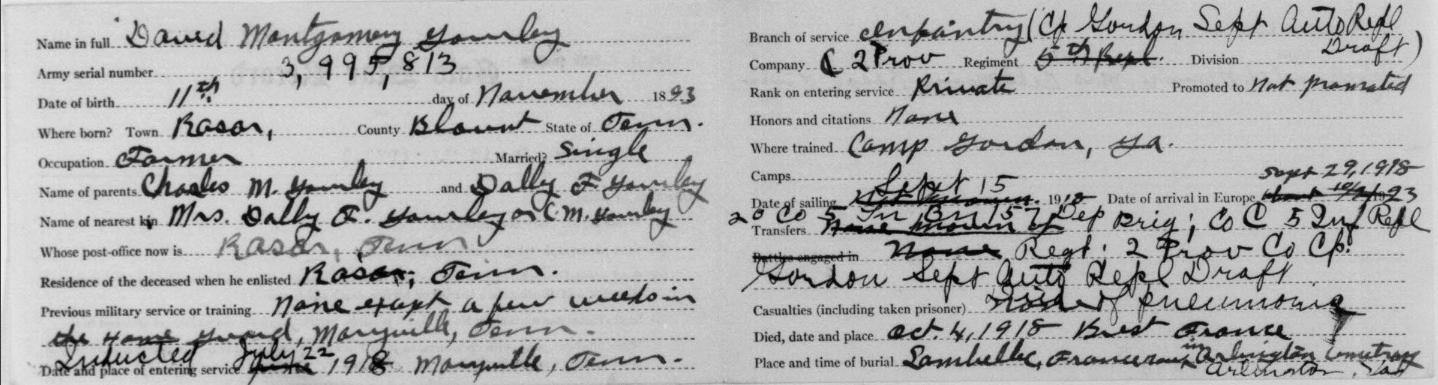 Name in full David Montgomery Yourley
Army serial number 3,995,813
Date of birth 11th day of November 1893
Where born? Town Rasar, County Blount State of Tenn.
Occupation Farmer Married? Single
Name of parents Charles M. Yourley and Dally F Yourley
Name of nearest kin Mrs. Dally F. Yourley or C M. Yourley
Whose post-office now is Rasar, Tenn
Residence of the deceased when he enlisted Rasar, Tenn.
Previous military service or training None exept a few weeks in
the home guard, Maryville, Tenn.
Inducted July 22
Date and place of entering service 1918 Maryville, Tenn.
Branch of service Infantry (Cp Gordon Sept Auto Repl
Draft)
Company C 2 Prov Regiment 5th Repl. Division
Rank on entering service Private Promoted to Not promoted
Honors and citations None
Where trained Camp Gordon, Ga.
Camps
Sept 15 Sept 29, 1918
Date of sailing 1918 Date of arrival in Europe
20 Co 5 Tn Bn 157 Dep Brig; Co C 5 Inf Repl
Transfers
Battles engaged in None Regt; 2 Prov Co Cp.
Gordon Sept Auto Repl Draft
Casualties (including taken prisoner) of pneumonia
Died, date and place Oct. 4, 1918 Brest France
Place and time of burial Lambelle, France in Arlington Cemetray
Arlington